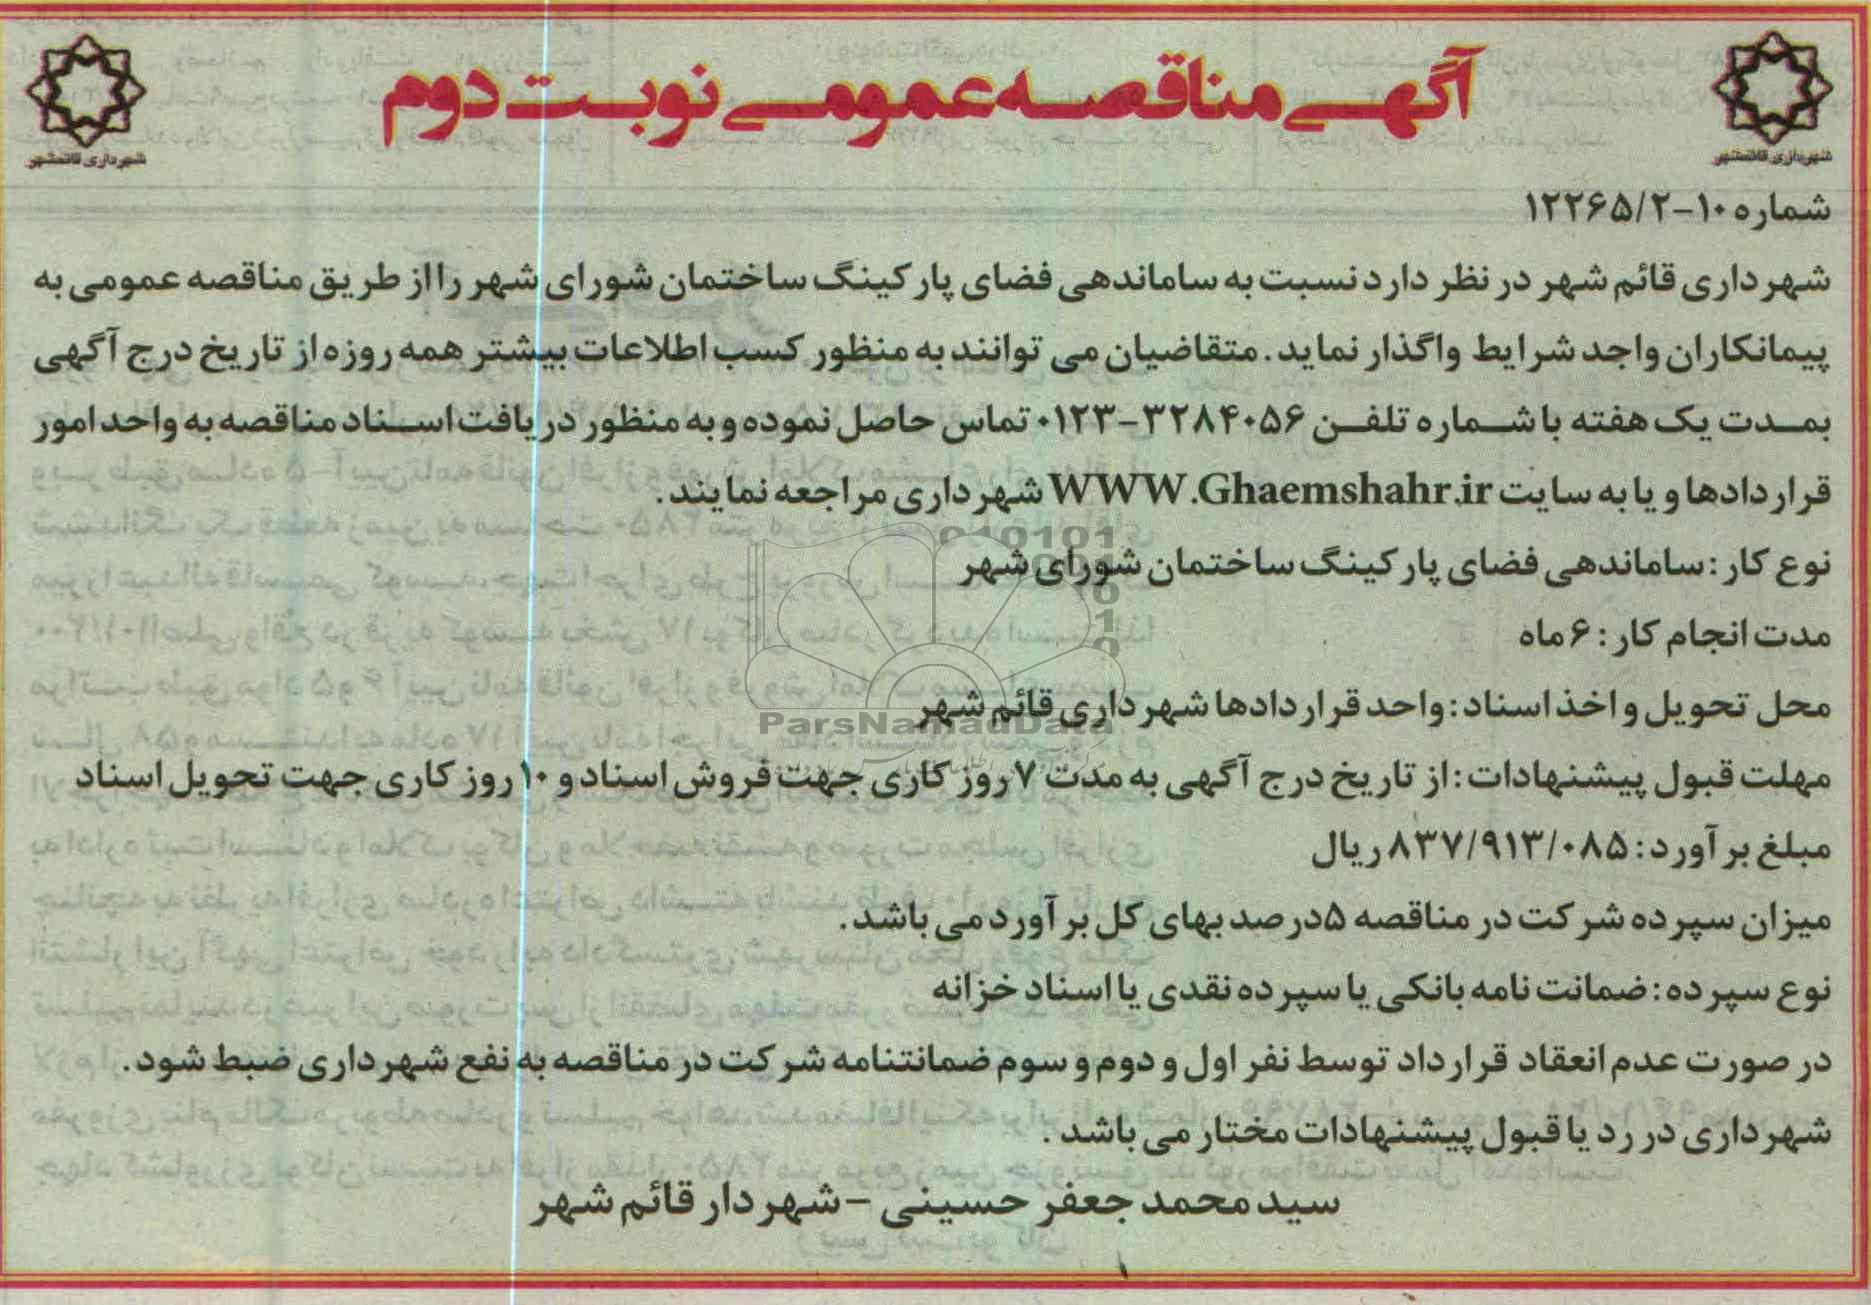 آگهی مناقصه عمومی نوبت دوم
شهرداری قائمشهر
شهرداری قائمشهر
شماره ۱۰-۱۲۲۶۵/۲
شهرداری قائم شهر در نظر دارد نسبت به ساماندهی فضای پارکینگ ساختمان شورای شهر را از طریق مناقصه عمومی به
پیمانکاران واجد شرایط واگذار نماید. متقاضیان می توانند به منظور کسب اطلاعات بیشتر همه روزه از تاریخ درج آگهی
بمدت یک هفته با شماره تلفن ۳۲۸۴۰۵۶-۰۱۲۳ تماس حاصل نموده و به منظور دریافت اسناد مناقصه به واحد امور
قراردادها و یا به سایت WWW.Ghaemshahr.ir شهرداری مراجعه نمایند.
نوع کار: ساماندهی فضای پارکینگ ساختمان شورای شهر
مدت انجام کار: ۶ ماه
محل تحویل و اخذ اسناد: واحد قراردادها شهرداری قائم شهر
ParsNamadData
مهلت قبول پیشنهادات: از تاریخ درج آگهی به مدت ۷ روز کاری جهت فروش اسناد و ۱۰ روز کاری جهت تحویل اسناد
مبلغ برآورد: ۸۳۷/۹۱۳/۰۸۵ ریال
میزان سپرده شرکت در مناقصه ۵درصد بهای کل برآورد می باشد.
نوع سپرده: ضمانت نامه بانکی یا سپرده نقدی یا اسناد خزانه
در صورت عدم انعقاد قرارداد توسط نفر اول و دوم و سوم ضمانتنامه شرکت در مناقصه به نفع شهرداری ضبط شود.
شهرداری در رد یا قبول پیشنهادات مختار می باشد.
سید محمد جعفر حسینی - شهردار قائم شهر